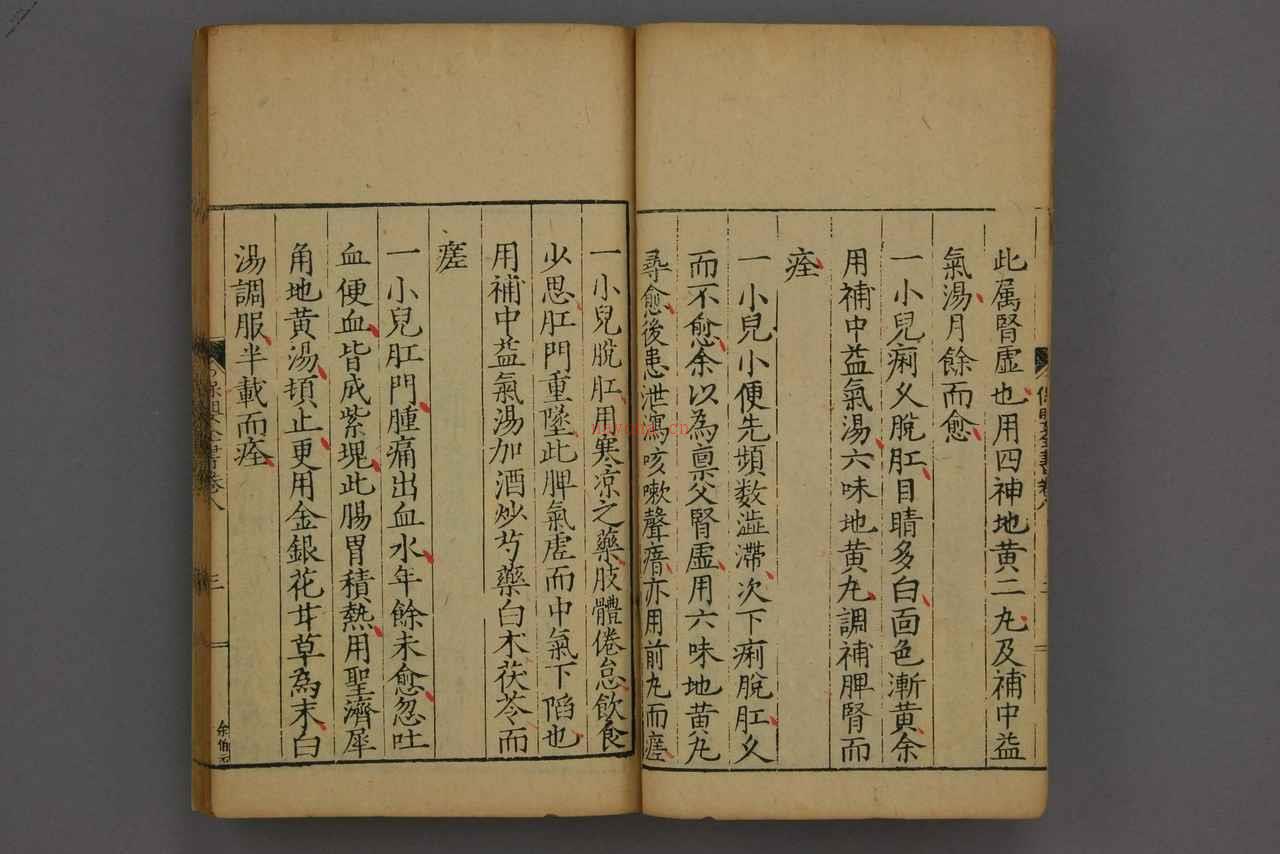 此属腎虛也用四神地黄二丸及補中益
氣湯月餘而愈
一小兒痢久脫肛目睛多白面色漸黄余
用補中益氣湯六味地黄丸調補脾腎而
痊
一小兒小便先頻數澁滯次下痢脫肛久
而不愈余以為禀父腎虛用六味地黄丸
尋愈後患泄瀉咳嗽聲瘖亦用前丸而瘥
一小兒脫肛用寒凉之藥肢體倦怠飲食
少思肛門重墜此脾氣虛而中氣下陷也
用補中益氣湯加酒炒芍藥白朮茯苓而
瘥
一小兒肛門腫痛出血水年餘未愈忽吐
血便血皆成紫塊此腸胃積熱用聖濟犀
角地黄湯頓止更用金銀花甘草為末白
湯調服半載而痊
卷八
三